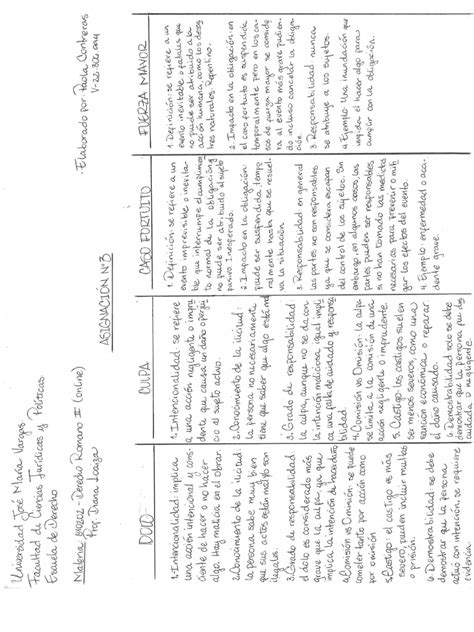 Universidad José María Vargas
Facultad de Ciencias Jurídicas y Políticas
Escuela de Derecho
Elaborado por Paola Contreras
Materia: Derecho Romano II (online)
Prof. Diana
ASIGNACION N°3
DOLO
1. Intencionalidad implica
una acción intencional y cons-
ciente de hacer o no hacer
algo. Hay malicia en el acto
2. Conocimiento de la ilicitud:
la persona sabe muy bien
que sus actos están malos o son
ilegales.
3. Grado de responsabilidad
el dolo es considerado más
grave que la culpa, ya que
implica la intención de hacer daño
4. Comisión vs Omisión se puede
cometer tanto por acción como
por omisión
5. Castigo: el castigo es más
severo, pueden incluir multas
o prisión.
6. Demostrabilidad se debe
demostrar que la persona
actuó con intención, se requiere
evidencia.
CULPA
1. Intencionalidad se refiere
a una acción negligente o impru
dente que causa un daño o perjui
cio al sujeto activo.
2. Conocimiento de la ilicitud:
la persona no necesariamente
tiene que saber que algo está mal
3. Grado de responsabilidad
la culpa, aunque no se da con
la intención maliciosa, igual impli
ca una falta de cuidado y responsa
4. Comisión vs Omisión: la culpa
se limita a la comisión de una
acción negligente o imprudente.
5. Castigo: los castigos suelen
ser menos severos, como una
sanción económica, o reparar
el daño causado.
6. Demostrabilidad solo se debe
demostrar que la persona fue des
cuidada o negligente.
CASO FORTUITO
1. Definición: se refiere a un
evento imprevisible o inevita-
ble que interrumpe el cumplimien
to normal de la obligación y
no puede ser atribuido al sujeto
pasivo. Inesperado.
2. Impacto en la obligación:
puede ser suspendida, tempo
ralmente hasta que se resuel-
va la situación
3. Responsabilidad en general
las partes no son responsables
ya que se considera escapan
del control de los sujetos. Sin
embargo en algunos casos, las
partes pueden ser responsables,
si no han tomado las medidas
necesarias para prevenir o miti
gar los efectos del evento.
4. Ejemplo: enfermedad o acci-
dente grave.
FUERZA MAYOR
1. Definición: se refiere a un
evento inevitable o fatales que
no puede ser atribuido a la
acción humana, como los desas
tres naturales. Repentino.
2. Impacto en la obligación: en
el caso fortuito es suspendida
temporalmente pero en los ca-
sos de fuerza mayor se conside
ra al evento más grave pudien
do incluso cancelar la obliga-
ción.
3. Responsabilidad nunca
se atribuye a los sujetos.
4. Ejemplo: Una inundación que
impida el hacer algo para
cumplir con la obligación.